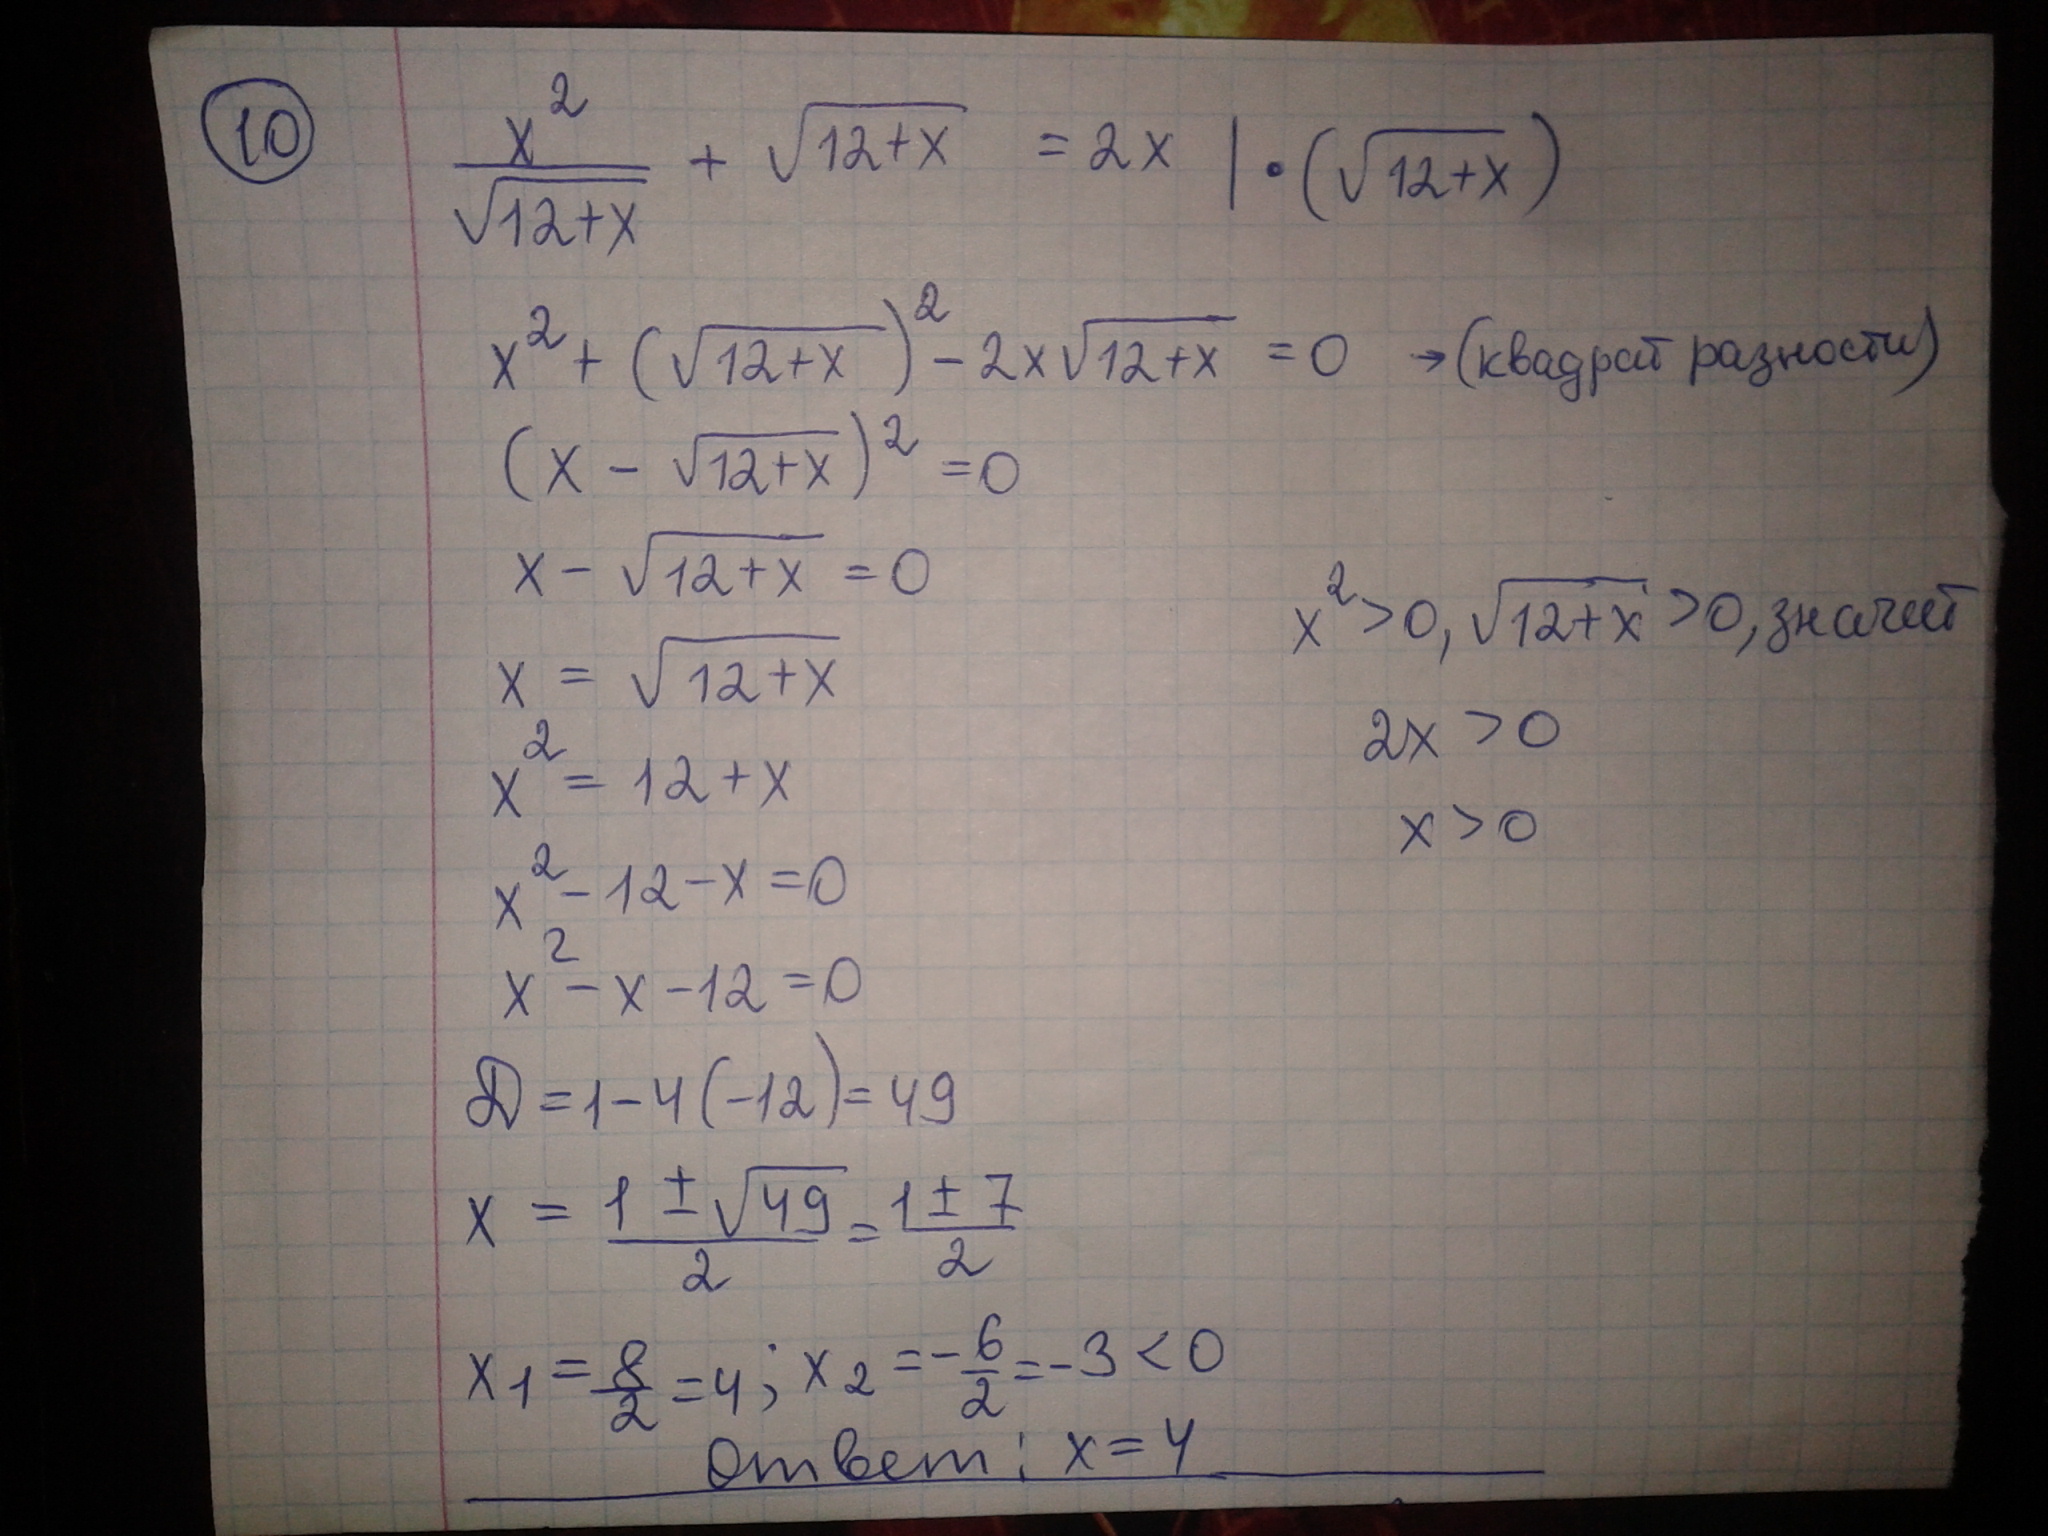 10
x²/√(12+x) + √(12+x) = 2x | • (√(12+x))
x² + (√(12+x))² - 2x√(12+x) = 0 → (квадрат разности)
(x - √(12+x))² = 0
x - √(12+x) = 0
x = √(12+x)
x² = 12+x
x² - 12 - x = 0
x² - x - 12 = 0
D = 1 - 4(-12) = 49
x = (1 ± √49)/2 = (1 ± 7)/2
x₁ = 8/2 = 4; x₂ = -6/2 = -3 < 0
ответ: x = 4
x² > 0, √(12+x) > 0, значит
2x > 0
x > 0